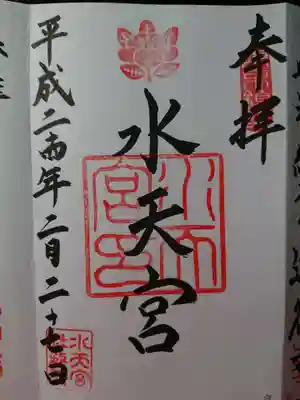 奉拝
水天宮
水天宮印
平成二十四年二月二十七日
水天宮